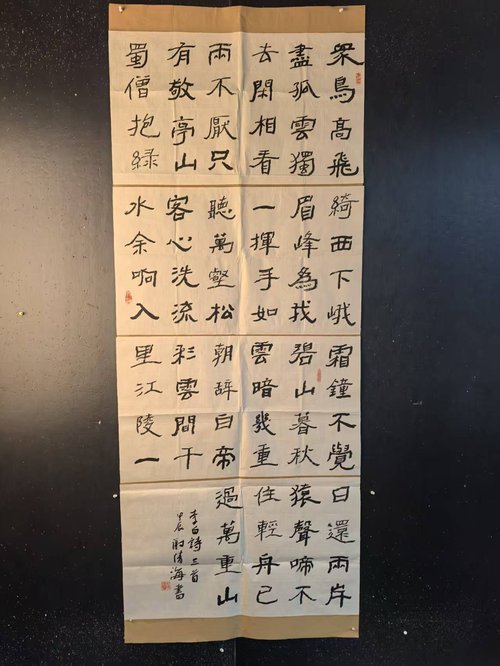 衆鳥高飛
盡孤雲獨
去閑相看
兩不厭只
有敬亭山
蜀僧抱綠
綺西下峨
眉峰為我
一揮手如
聽萬壑松
客心洗流
水余响入
霜鐘不覺
碧山暮秋
雲暗幾重
朝辭白帝
彩雲間千
里江陵一
日還兩岸
猿聲啼不
住輕舟已
過萬重山
李白詩三首
甲辰海書